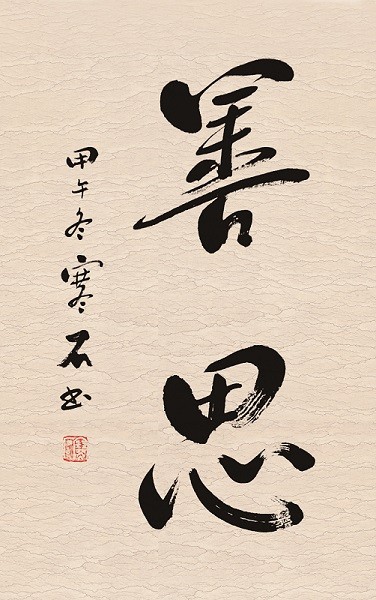 善思
甲午冬寒石书